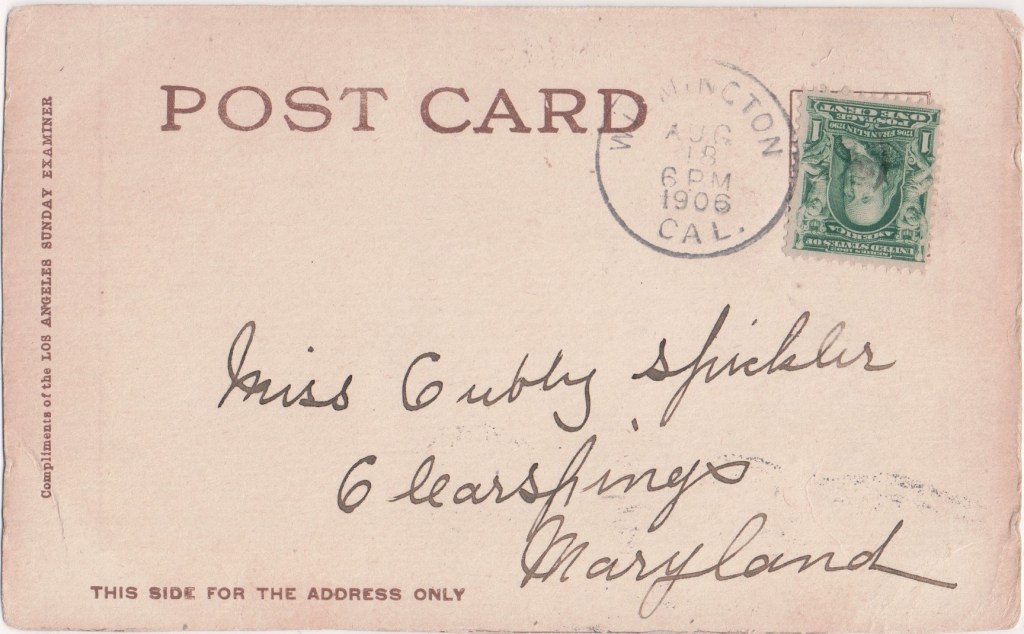 POST CARD
WILMINGTON
AUG
18
6 PM
1906
CAL.
SERIES 1902
UNITED STATES OF
AMERICA
1706 FRANKLIN 1790
POSTAGE
1 ONE CENT 1
Compliments of the LOS ANGELES SUNDAY EXAMINER
Miss Cubby Spickler
Clearspings
Maryland
THIS SIDE FOR THE ADDRESS ONLY